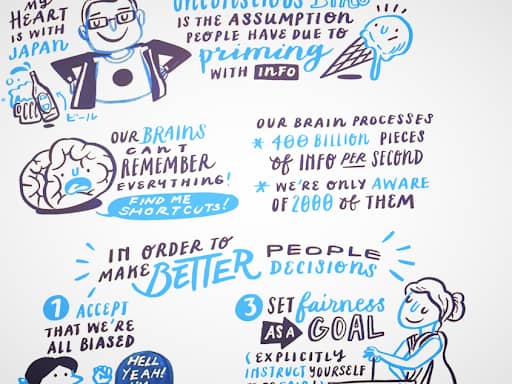 MY
HEART
IS WITH
JAPAN
ビール
UNCONSCIOUS BIAS
IS THE ASSUMPTION
PEOPLE HAVE DUE TO
priming
WITH INFO
OUR BRAINS
CAN'T
REMEMBER
EVERYTHING!
FIND ME
SHORTCUTS!
OUR BRAIN PROCESSES
* 400 BILLION PIECES
of INFO PER SECOND
* WE'RE ONLY AWARE
OF 2000 of THEM
IN ORDER TO
MAKE BETTER PEOPLE
DECISIONS
1 ACCEPT
THAT WE'RE
ALL BIASED
HELL
YEAH!
3 SET fairness
AS A GOAL
(EXPLICITLY
INSTRUCT YOURSELF